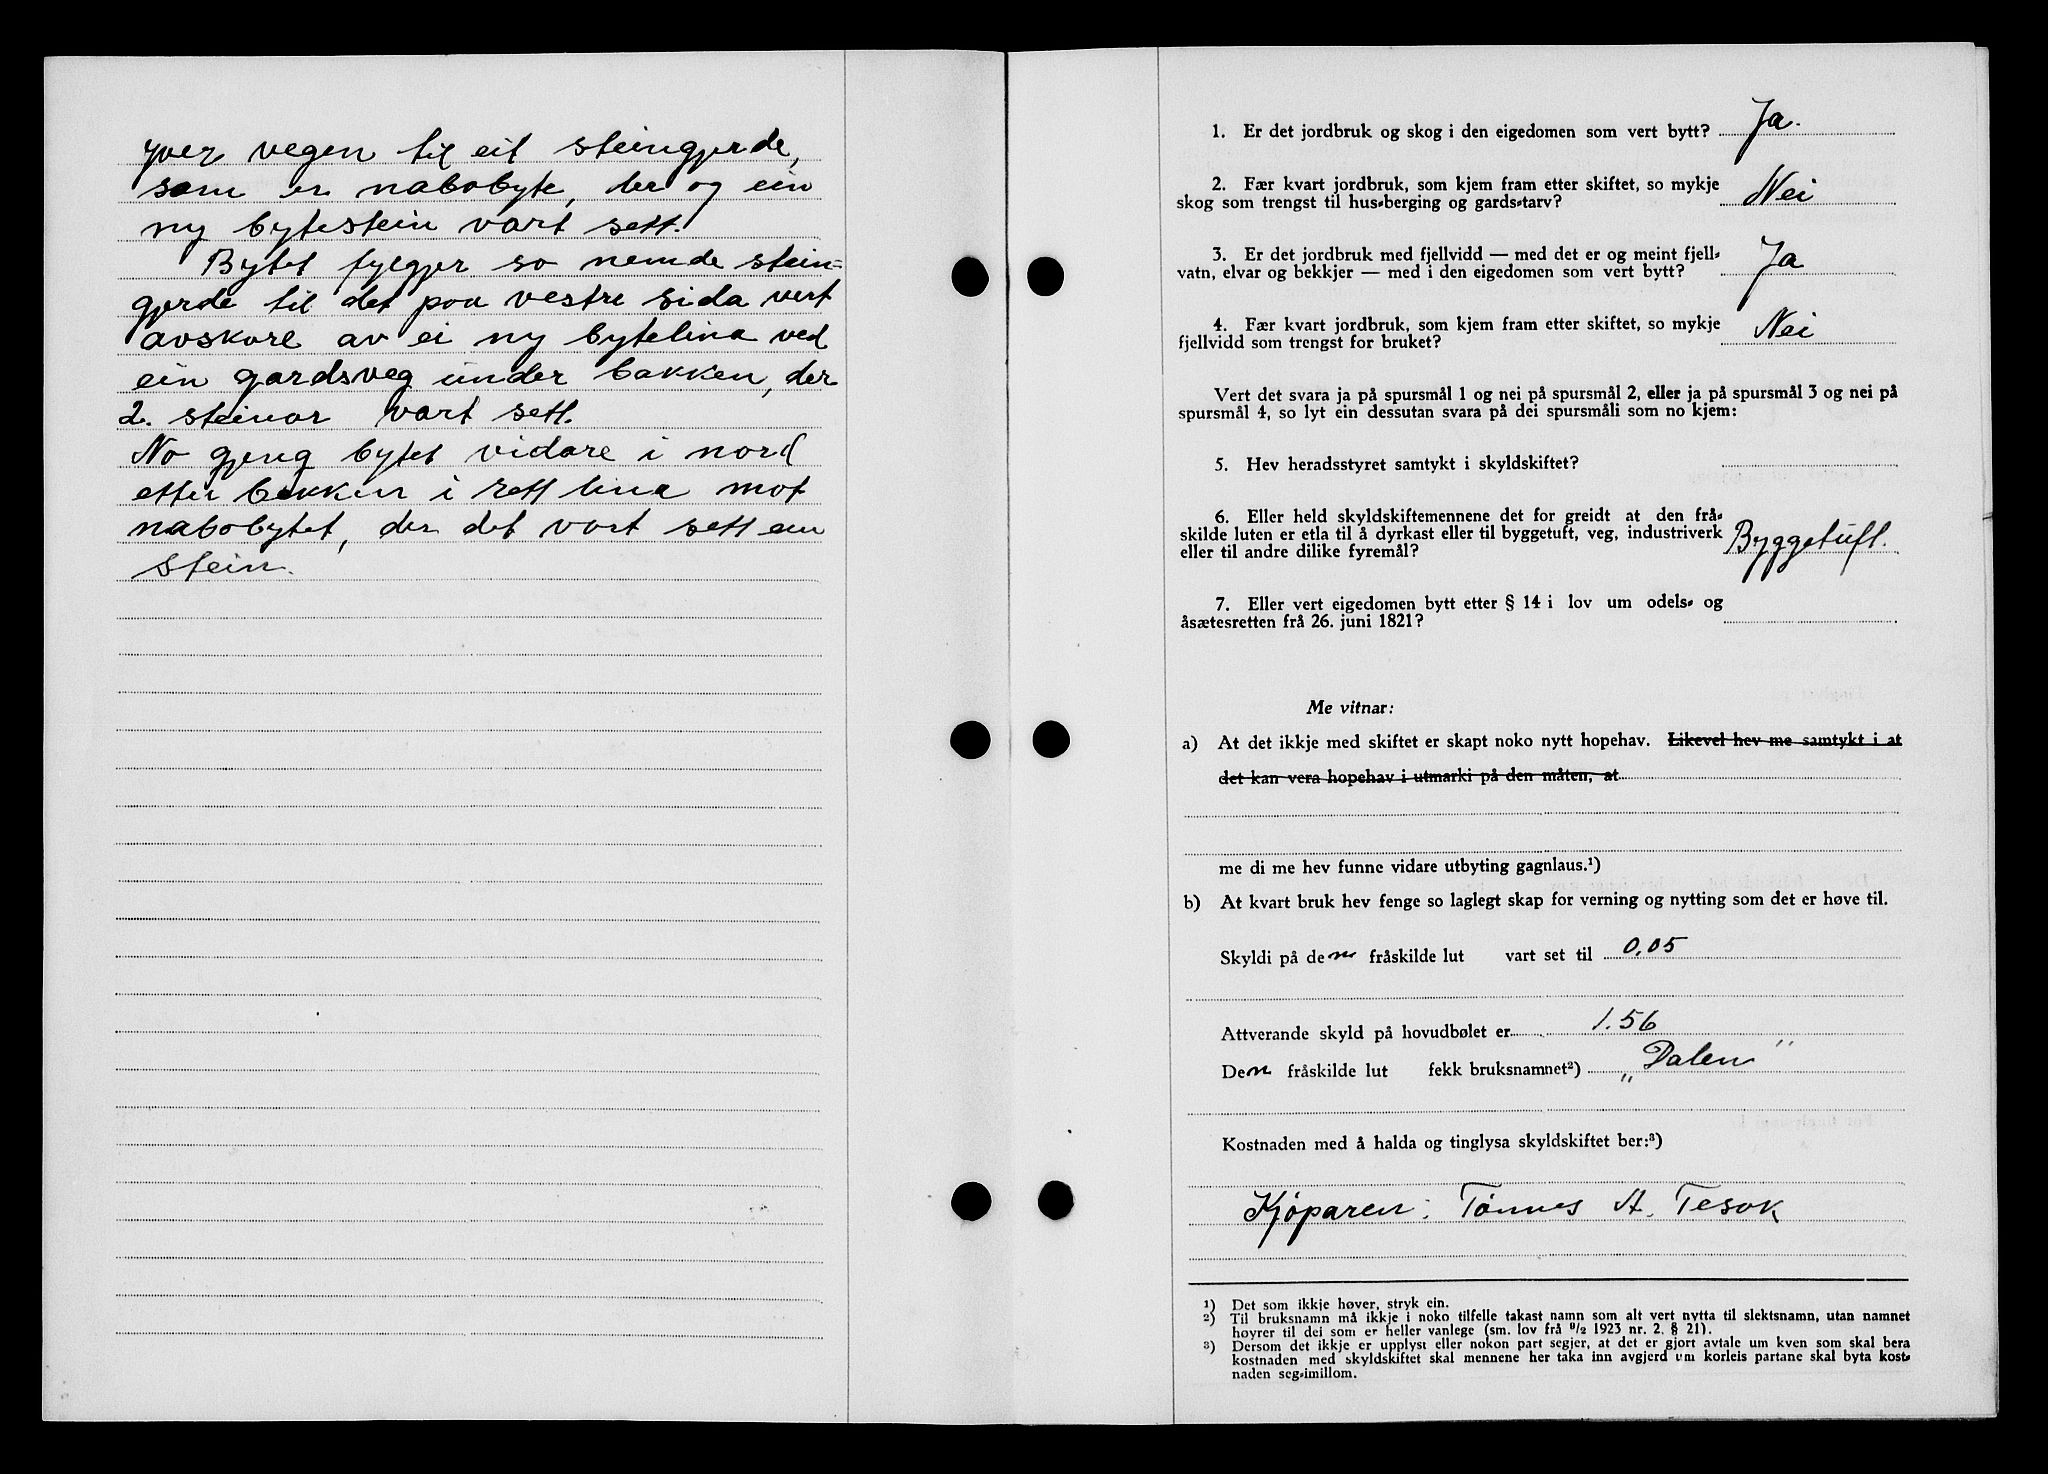 yver vegen til eit steingjerde,
som er nabobyte, der og ein
ny bytestein vart sett.
Bytet fylgjer so nemde stein=
gjerde til det paa vestre sida vert
avskore av ei ny bytelina ved
ein gardsveg under bakken, der
2. steinar vart sett.
No gjeng bytet vidare i nord
etter bakken i rett lina mot
nabobytet, der det vart sett ein
stein.
1. Er det jordbruk og skog i den eigedomen som vert bytt? Ja.
2. Fær kvart jordbruk, som kjem fram etter skiftet, so mykje
skog som trengst til hus-berging og gards-tarv? Nei
3. Er det jordbruk med fjellvidd — med det er og meint fjell-
vatn, elvar og bekkjer — med i den eigedomen som vert bytt? Ja
4. Fær kvart jordbruk, som kjem fram etter skiftet, so mykje
fjellvidd som trengst for bruket? Nei
Vert det svara ja på spursmål 1 og nei på spursmål 2, eller ja på spursmål 3 og nei på
spursmål 4, so lyt ein dessutan svara på dei spursmåli som no kjem:
5. Hev heradsstyret samtykt i skyldskiftet?
6. Eller held skyldskiftemennene det for greidt at den frå-
skilde luten er etla til å dyrkast eller til byggetuft, veg, industriverk
eller til andre dilike fyremål? Byggetuft.
7. Eller vert eigedomen bytt etter § 14 i lov um odels- og
åsætesretten frå 26. juni 1821?
Me vitnar:
a) At det ikkje med skiftet er skapt noko nytt hopehav. Likevel hev me samtykt i at
det kan vera hopehav i utmarki på den måten, at
me di me hev funne vidare utbyting gagnlaus.¹)
b) At kvart bruk hev fenge so laglegt skap for verning og nytting som det er høve til.
Skyldi på den fråskilde lut vart set til 0,05
Attverande skyld på hovudbølet er 1.56
Den fråskilde lut fekk bruksnamnet²) „Dalen"
Kostnaden med å halda og tinglysa skyldskiftet ber:³)
Kjøparen: Tønnes A. Tesak
¹) Det som ikkje høver, stryk ein.
²) Til bruksnamn må ikkje i noko tilfelle takast namn som alt vert nytta til slektsnamn, utan namnet
høyrer til dei som er heller vanlege (sm. lov frå ⁹/₂ 1923 nr. 2. § 21).
³) Dersom det ikkje er upplyst eller nokon part segjer, at det er gjort avtale um kven som skal bera
kostnaden med skyldskiftet skal mennene her taka inn avgjerd um korleis partane skal byta kost-
naden seg-imillom.